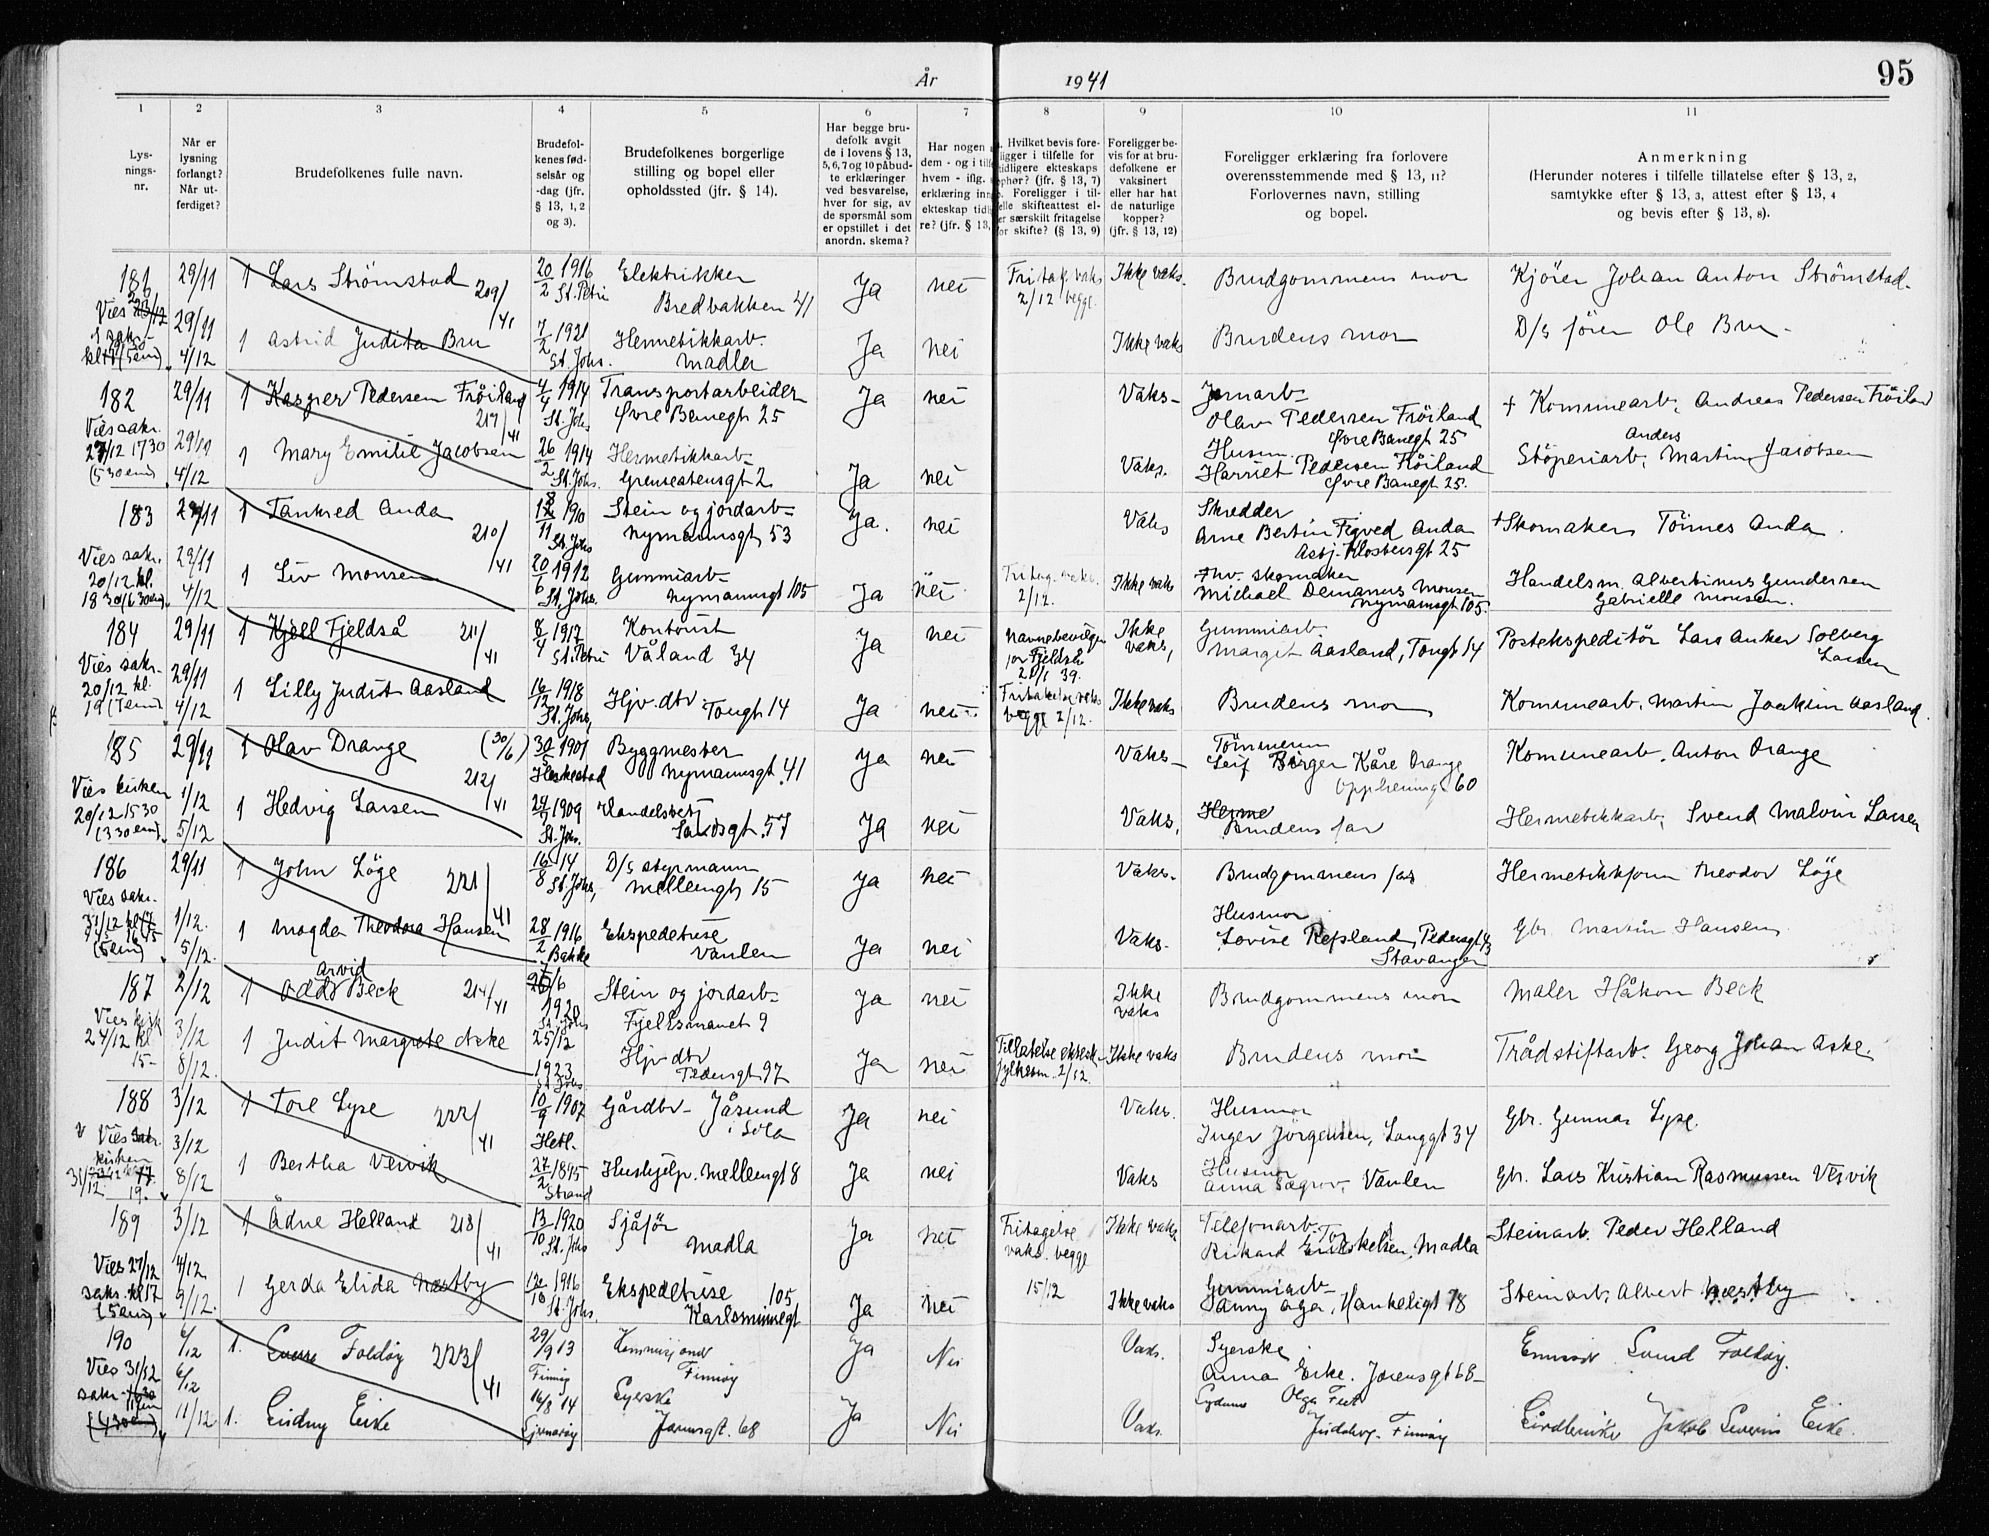 År 1941
95
1 2 3 4 5 6 7 8 9 10 11
Lys-
nings-
nr.
Når er
lysning
forlangt?
Når ut-
ferdiget?
Brudefolkenes fulle navn.
Brudefol-
kenes fød-
selsår og
-dag (jfr.
§ 13, 1, 2
og 3).
Brudefolkenes borgerlige
stilling og bopel eller
opholdssted (jfr. § 14).
Har begge bru-
defolk avgit
de i lovens § 13,
5, 6, 7 og 10 påbud-
te erklæringer
ved besvarelse,
hver for sig, av
de spørsmål som
er opstillet i det
anordn. skema?
Har nogen
dem - og i
hvem - iflg.
erklæring
ekteskap
re? (jfr. § 13,
Hvilket bevis fore-
ligger i tilfelle for
tidligere ekteskaps
ophør? (jfr. § 13, 7)
Foreligger i til-
felle skifteattest el-
er særskilt fritagelse
for skifte? (§ 13, 9)
Foreligger be-
vis for at bru-
defolkene er
vaksinert
eller har hat
de naturlige
kopper?
(jfr. § 13, 12)
Foreligger erklæring fra forlovere
overensstemmende med § 13, 11?
Forlovernes navn, stilling
og bopel.
Anmerkning
(Herunder noteres i tilfelle tillatelse efter § 13, 2,
samtykke efter § 13, 3, attest efter § 13, 4
og bevis efter § 13, 8).
181 29/11 1 Lars Strømstad 209/41 20/2 1916 St. Petri Elektriker Bredbakken 41 Ja nei Fritag. vaks 2/12 begge. Ikke vaks. Brudgommens mor Kjører Johan Anton Strømstad.
Vies 29/11 4/12 1 Astrid Judita Bru 7/2 1921 St. Johs. Hermetikkarb. Madler Ja nei Ikke vaks Brudens mor D/s fører Ole Bru
182 29/11 1 Kasper Pedersen Frøiland 217/41 4/4 1914 St. Johs Transportarbeider Øvre Banegt 25 Ja nei Vaks Jernarb. Olav Pedersen Frøiland Øvre Banegt 25 + Kommunearb. Andreas Pedersen Frøiland
Vies sakr. 27/12 1730 (530 em) 29/10 4/12 1 Mary Emilie Jacobsen 26/2 1914 St. Johs. Hermetikkarb Grensestensgt 2 Ja nei Vaks. Husm. Harriet Pedersen Frøiland Øvre Banegt 25. Støperiarb. Martin Anders Jacobsen
183 29/11 1 Tankred Anda 210/41 1910 St. Johs Stein og jordarb Nymannsgt 53 Ja. nei Vaks Skredder Arne Bertin Figved Anda Asbj. Klostersgt 25 + Skomaker Tönnes Anda
Vies sakr. 20/12 kl. 18 30 (6 30 em) 29/11 4/12 1 Liv Monsen 20/6 1912 St. Johs. Gummiarb Nymannsgt 105 Ja nei Fritag. vaks. 2/12. Ikke vaks Fhv. skomaker Michael Demanus Monsen Nymannsgt 105. Handelsm. Albertinus Gundersen Gabrielle Monsen.
184 29/11 1 Kjell Fjeldså 211/41 8/4 1917 St. Petri Kontorist Våland 34 Ja nei Navnebevilgn for Fjeldså 39. Ikke vaks, Gummiarb. Margit Aasland, Tougt 14 Postekspeditør Lars Anker Solberg Larsen
Vies sakr. 20/12 kl. 19 (7 em) 29/11 4/12 1 Lilly Judit Aasland 16/12 1918 St. Johs, Hjv. dtr Tougt 14 Ja nei Fritakelse vaks begge 2/12. Ikke vaks Brudens mor Kommunearb. Martin Joakim Aasland.
185 1 Olav Drange (30/6) 212/41 1901 Heskestad Byggmester Nymannsgt. 41 Ja nei Vaks Tømmerm Leif Birger Kåre Drange 60 Kommunearb. Anton Drange
Vies kirken 20/12 15 30 (3 30 em) 1/12 5/12 1 Hedvig Larsen 1909 St. Johs. Handelsbest Sandsgt. 57 Ja nei Vaks, Herme Brudens far Hermetikkarb. Svend Malvin Larsen
186 29/11 1 John Løge 221/41 16/8 14 St. Johs, D/s styrmann Mellemgt 15 Ja nei Vaks. Brudgommens far Hermetikkform Theodor Løge
Vies sakr. 31/12 (5 em) 1/12. 5/12. 1 Magda Theodora Hansen 28/2 1916 Bakke Ekspeditrise Vaulen Ja nei Vaks. Husmor Lovise Refsland, Pedersgt 43 Stavanger Gbr. Martin Hansen
187 2/12 1 Odd Arvid Beck 214/41 1920 St. Johs Stein og jordarb Fjellsmauet 9 Ja nei Ikke vaks Brudgommens mor Maler Håkon Beck
Vies kirk 24/12 kl 15- 3/12 8/12. 1 Judit Margrete Aske 25/12 1923 St. Johs Hjv dtr Pedersgt 97 Ja nei Tillatelse 2/12. Ikke vaks Brudens mor Trådstiftarb. Georg Johan Aske.
188 3/12 1 Tore Lyse 222/41 10/9 1907 Hetl. Gårdbr - Jåsund i Sola Ja nei Vaks. Husmor Inger Jörgensen, Langgt 34 Gbr. Gunnar Lyse.
Vies sakr. kirken 31/12 19. 3/12 8/12 1 Bertha Veivik 27/2 1895 Strand Hushjelp. Mellemgt 8 Ja nei Vaks Husmor Anna Vaulen Gbr. Lars Kristian Rasmussen Veivik
189 3/12 1 Ådne Helland 218/41 13/10 1920 St. Johs Sjåfør Madla Ja nei Fritagelse vaks. begge 15/12 Ikke vaks. Telefonarb. Rikard Tor Enoksen, Madla Steinarb. Peder Helland
Vies 27/12 sakr. kl 17 (5 em) 4/12. 9/12. 1 Gerda Elida Nestby 1916 St. Johs. Ekspeditrise 105 Karlsminnegt Ja nei Ikke vaks Gummiarb Fanny Aga, Hankeligt 18 Steinarb. Albert Nestby
190 6/12 1. Sverre Foldøy 223/41 29/9 13 Finnøy Kommisjonær Finnøy Ja Nei Vaks. Syerske Anna Eike. Jorensgt 68- Emissær Svend Foldøy.
Vies 31/12 sakr. (4 30 em) 6/12 11/12 1. Lindny Eike 16/8 14 Sjernarøy Syerske Jorensgt. 68 Ja Nei Vaks. Olga Judaberg. Finnøy Gårdbruker Jakob Severin Eike.